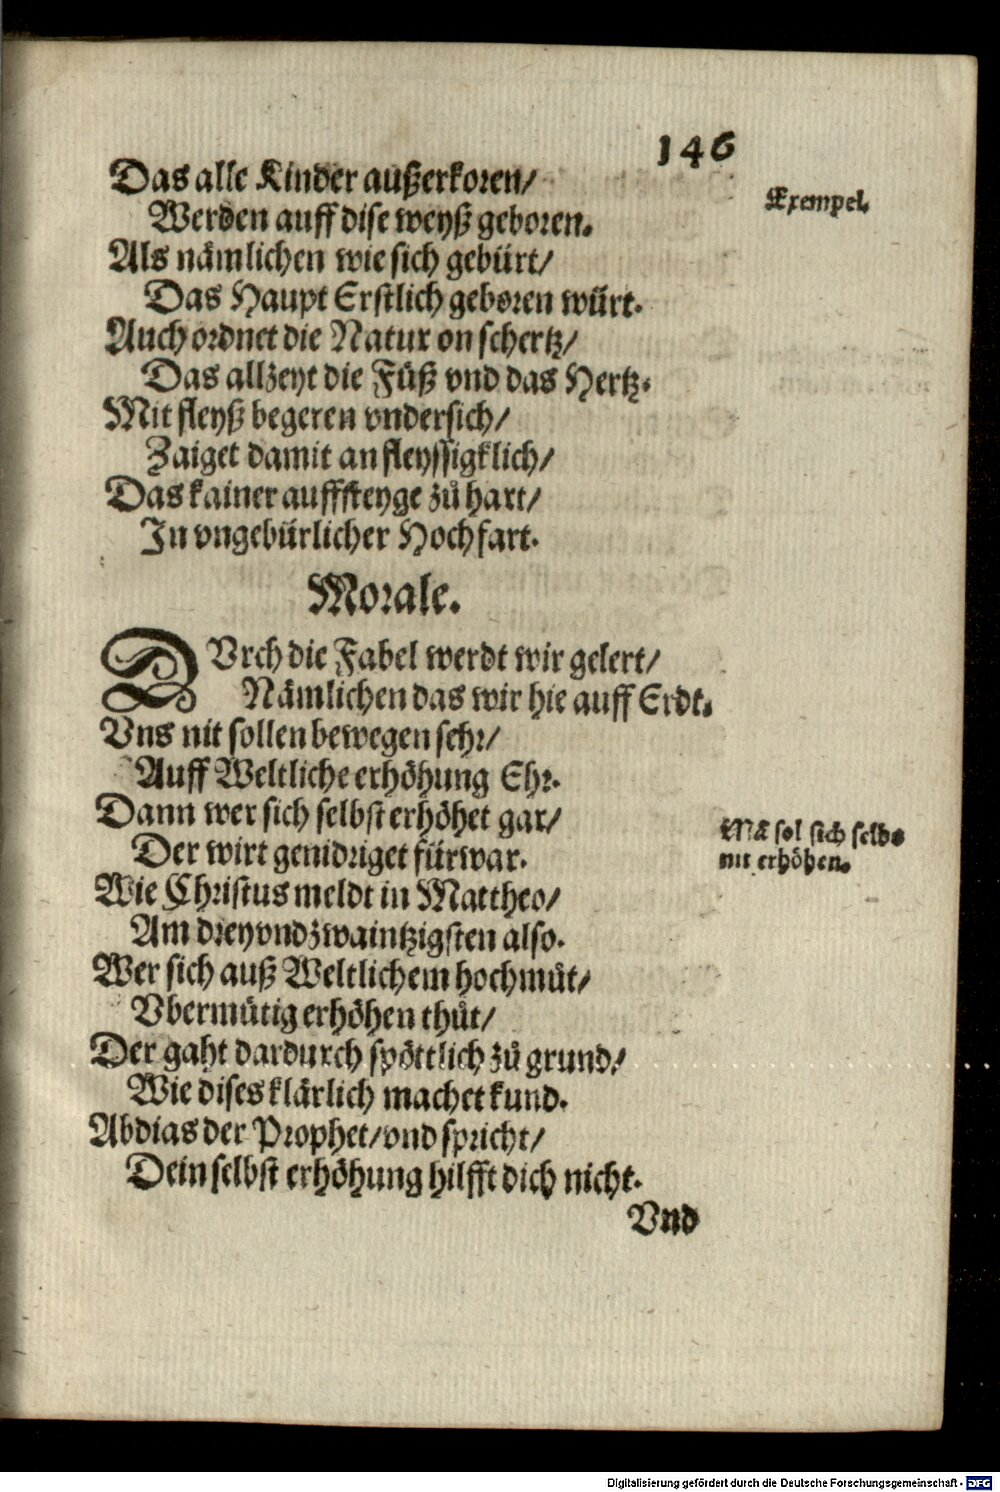 146
Das alle Kinder außerkoren/
Exempel.
Werden auff dise weyß geboren.
Als nämlichen wie sich gebürt/
Das Haupt Erstlich geboren würt.
Auch ordnet die Natur on schertz/
Das allzeyt die Füß vnd das Hertz.
Mit fleyß begeren vndersich/
Zaiget damit an fleyssigklich/
Das kainer auffsteyge zů hart/
In vngebürlicher Hochfart.
Morale.
DVrch die Fabel werdt wir gelert/
Nämlichen das wir hie auff Erdt.
Vns nit sollen bewegen sehr/
Auff Weltliche erhöhung Ehr.
Dann wer sich selbst erhöhet gar/
Mā sol sich selbs
Der wirt genidriget fürwar.
nit erhöhen.
Wie Christus meldt in Mattheo/
Am dreyvndzwaintzigsten also.
Wer sich auß Weltlichem hochmůt/
Vbermütig erhöhen thůt/
Der gaht dardurch spöttlich zů grund/
Wie dises klärlich machet kund.
Abdias der Prophet/vnd spricht/
Dein selbst erhöhung hilfft dich nicht.
Vnd
Digitalisierung gefördert durch die Deutsche Forschungsgemeinschaft - DFG